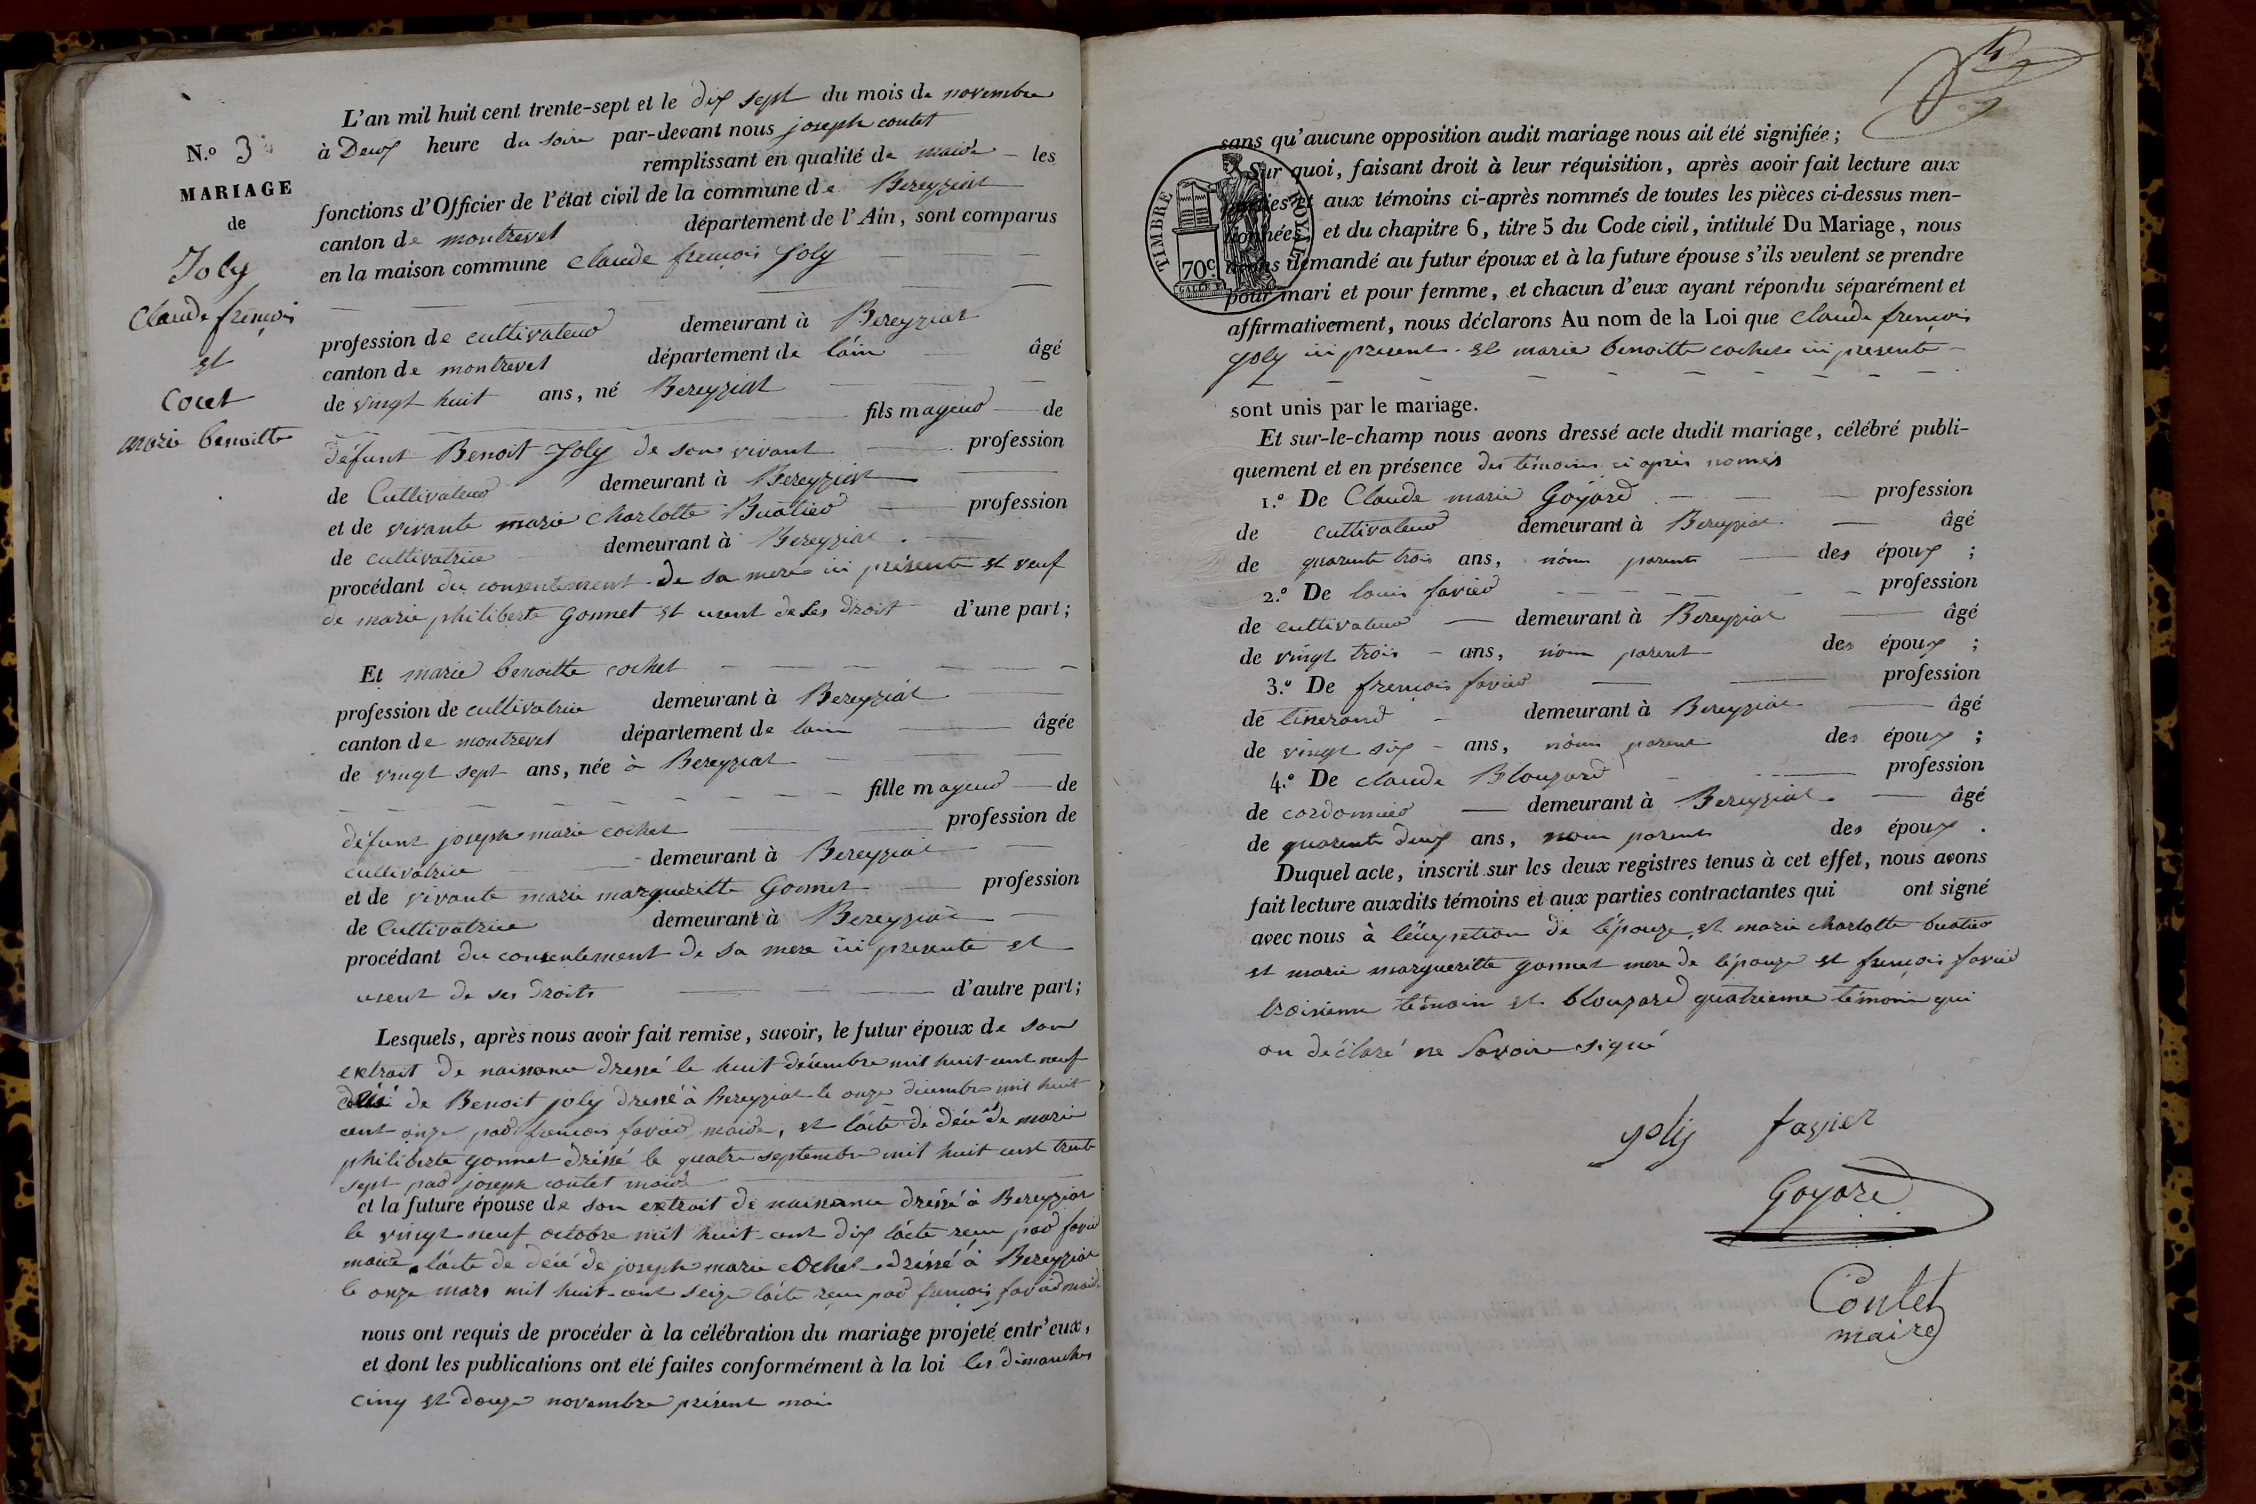 N.º 3
MARIAGE
de
Joly
Claude françois
et
Cocet
marie benoitte
L'an mil huit cent trente-sept et le dix sept du mois de novembre
à Deux heure du soir par-devant nous joseph coutet
remplissant en qualité de maire les
fonctions d'Officier de l'état civil de la commune de Bereyziat
canton de montrevel département de l'Ain, sont comparus
en la maison commune Claude françois Joly
profession de cultivateur demeurant à Bereyziat
canton de montrevel département de láin âgé
de vingt huit ans, né Bereyziat
fils mageur de
défunt Benoit Joly de son vivant profession
de Cultivateur demeurant à Bereyziat
et de vivante marie Charlotte Buatier profession
de cultivatrice demeurant à Bereyziat
procédant du consentement de sa mere ici présente et veuf
de marie philiberte gonnet et usent de ses droit d'une part;
Et marie benoitte cochet
profession de cultivatrice demeurant à Bereyziat
canton de montrevel département de lain âgée
de vingt sept ans, née à Bereyziat
fille mageur de
défunt joseph marie cochet profession de
cultivatrice demeurant à Bereyziat
et de vivante marie margueritte Gonnet profession
de Cultivatrice demeurant à Bereyziat
procédant du consentement de sa mere ici presente et
usent de ses droits d'autre part;
Lesquels, après nous avoir fait remise, savoir, le futur époux de son
extrait de naissance dressé le huit décembre mil huit cent neuf
de Benoit joly dressé à Bereyziat le onze décembre mil huit
cent onze par francois favier maire, et lácte de décé de marie
philiberte gonnet dréssé le quatre septembre mil huit cent trente
sept par joseph coutet maire
et la future épouse de son extrait de naissance dréssé à Bereyziat
le vingt neuf octobre mil huit cent dix lácte recu par favier
maire lácte de décé de joseph marie cochet dréssé à Bereyziat
le onze mars mil huit cent seize lácte recu par francois favier maire
nous ont requis de procéder à la célébration du mariage projeté entr'eux,
et dont les publications ont été faites conformément à la loi les dimanches
cinq et douze novembre présent mois
sans qu'aucune opposition audit mariage nous ait été signifiée;
Sur quoi, faisant droit à leur réquisition, après avoir fait lecture aux
parties et aux témoins ci-après nommés de toutes les pièces ci-dessus men-
tionnées, et du chapitre 6, titre 5 du Code civil, intitulé Du Mariage, nous
avons demandé au futur époux et à la future épouse s'ils veulent se prendre
pour mari et pour femme, et chacun d'eux ayant répondu séparément et
affirmativement, nous déclarons Au nom de la Loi que Claude françois
joly ici present et marie benoitte cochet ici presente
TIMBRE ROYAL
70c.
sont unis par le mariage.
Et sur-le-champ nous avons dressé acte dudit mariage, célébré publi-
quement et en présence des témoins ci après només
1.º De Claude marie Goyard profession
de cultivateur demeurant à Bereyziat âgé
de quarente trois ans, nóm parents des époux ;
2.º De louis favier profession
de cultivateur demeurant à Bereyziat âgé
de vingt trois ans, nóm parent des époux ;
3.º De françois favier profession
de tiserand demeurant à Bereyziat âgé
de vingt six ans, nóm parent des époux ;
4.º De claude Blouzard profession
de cordonnier demeurant à Bereyziat âgé
de quarente deux ans, nom parents des époux .
Duquel acte, inscrit sur les deux registres tenus à cet effet, nous avons
fait lecture auxdits témoins et aux parties contractantes qui ont signé
avec nous à léxcpsetion de lépouze et marie charlotte buatier
et marie margueritte gonnet mere de lépouze et françois favier
troisieme témoin et blouzard quatrieme témoin qui
on déclaré ne Savoir signé
joly favier
Goyard
Coutet
maire